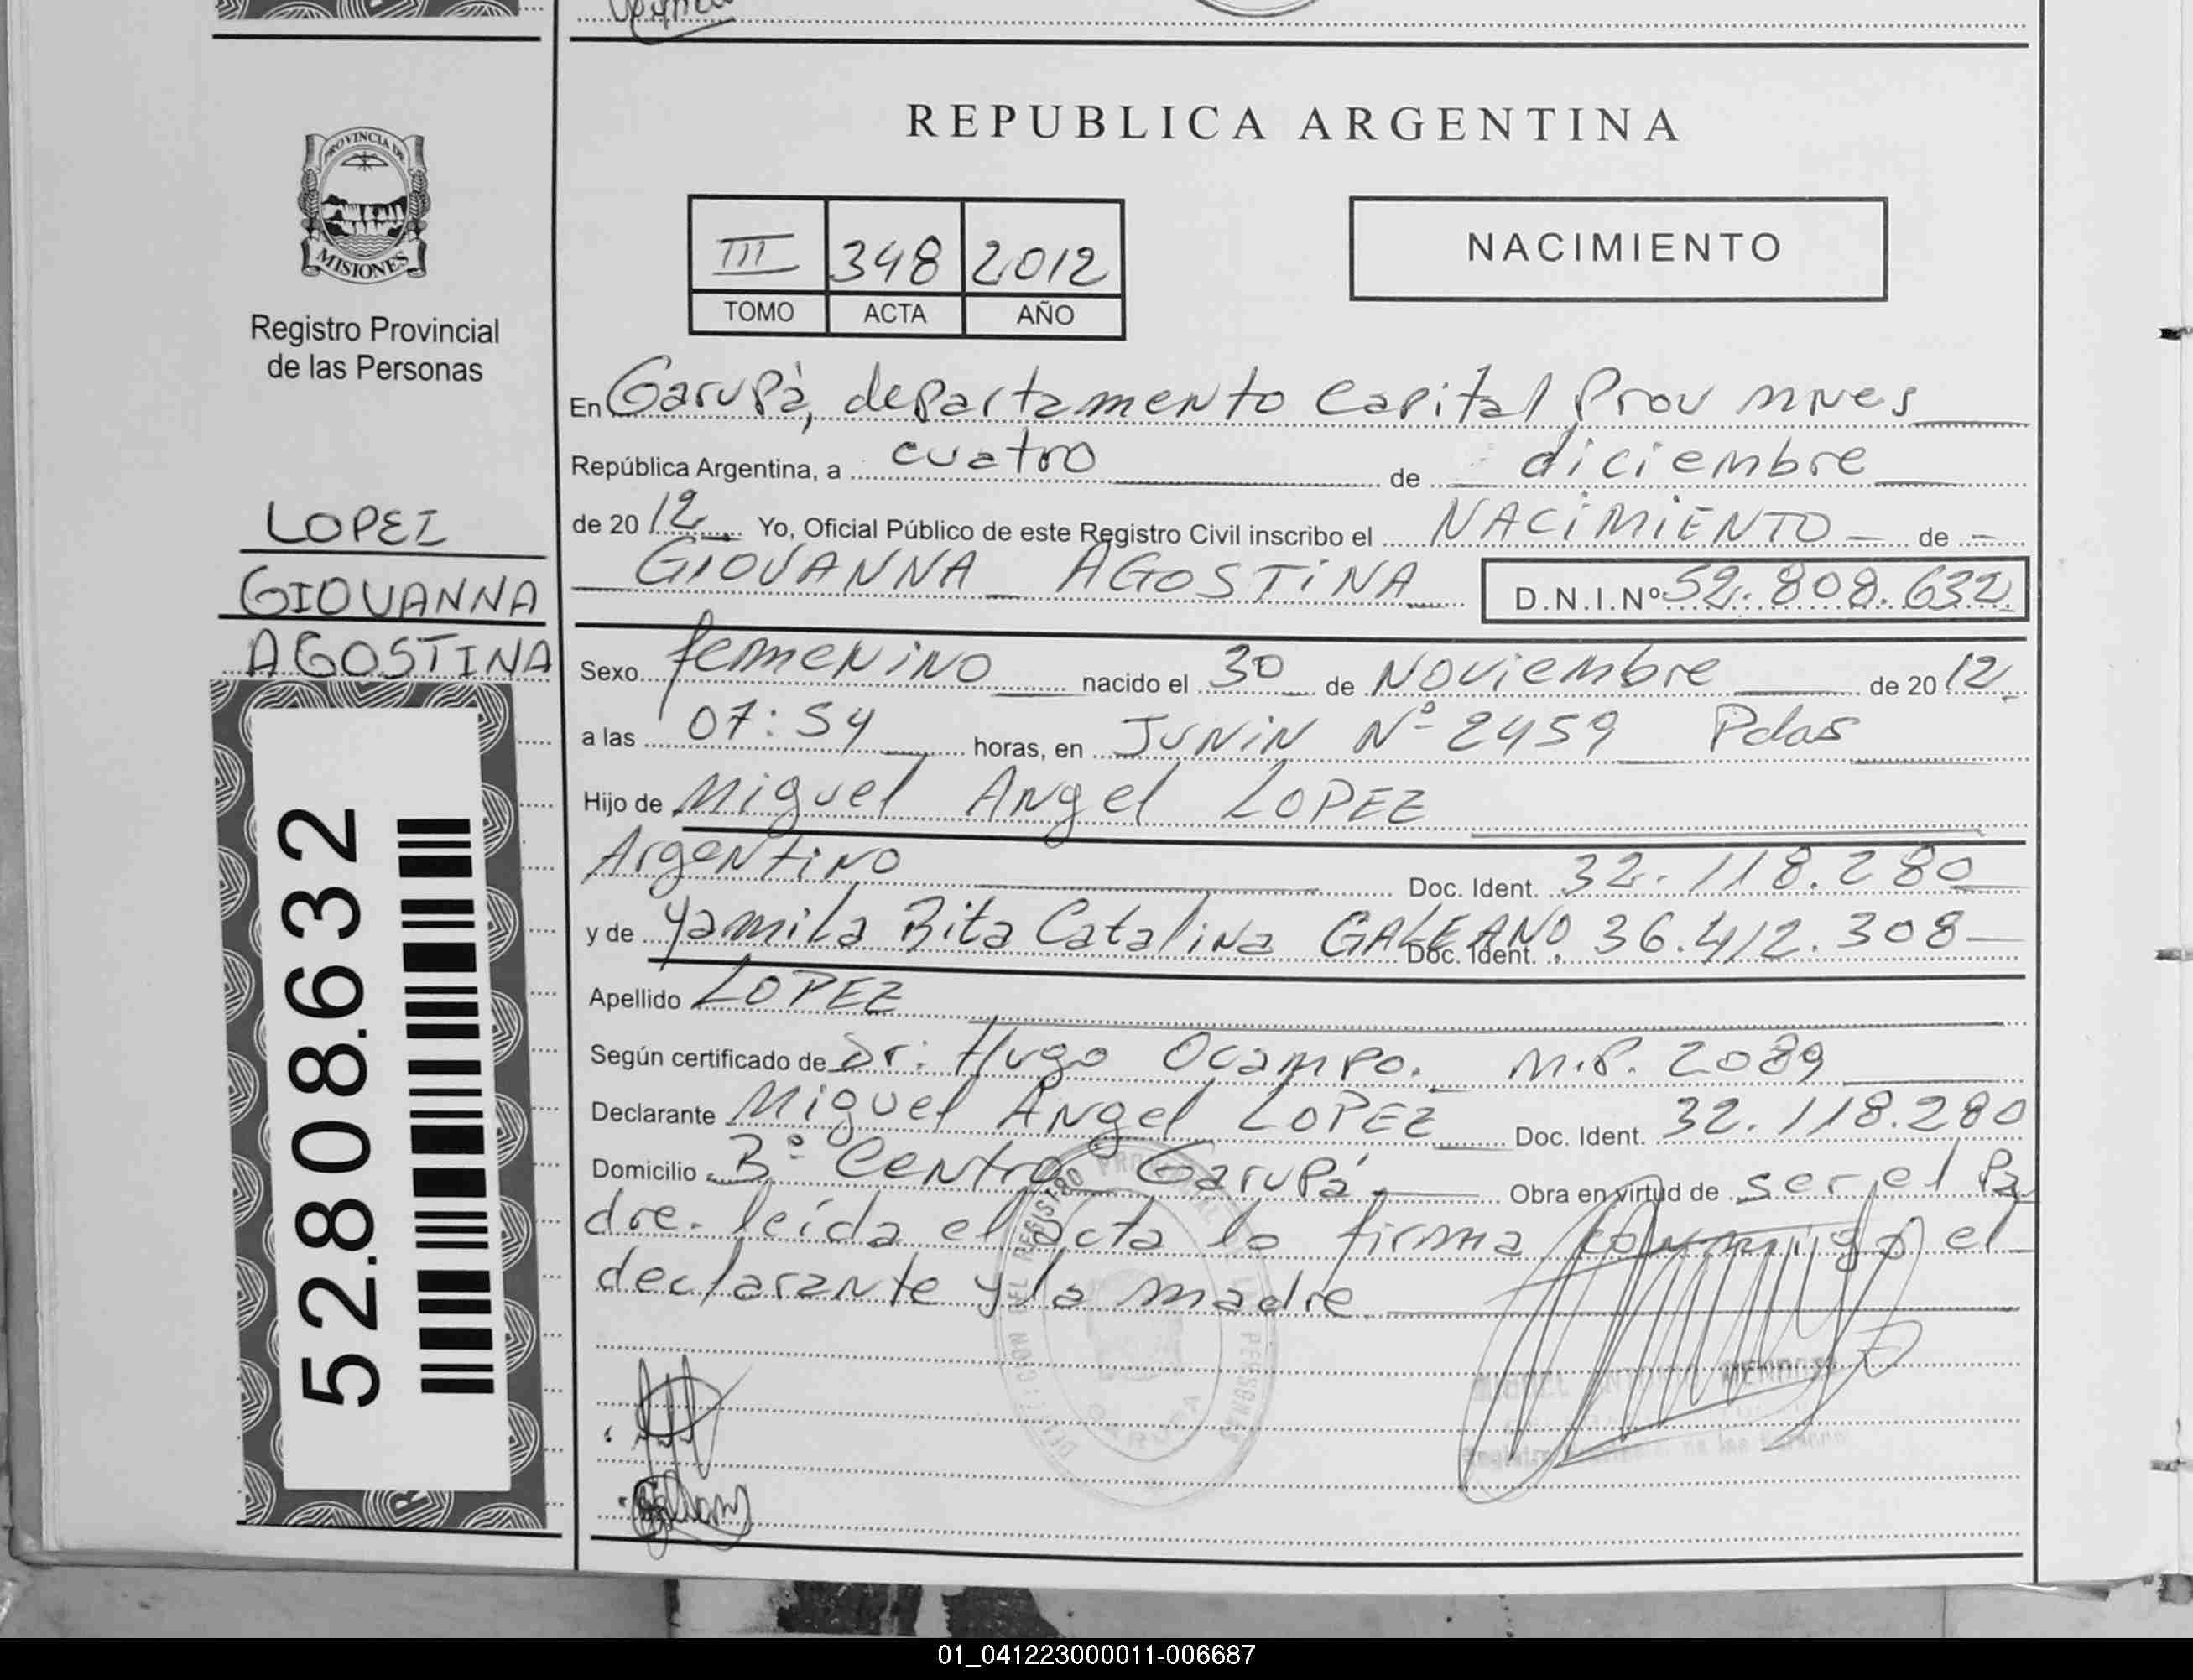 REPUBLICA ARGENTINA
PROVINCIA DE
MISIONES
Registro Provincial
de las Personas
III 348 2012
TOMO ACTA AÑO
NACIMIENTO
LOPEZ
GIOVANNA
AGOSTINA
52.808.632
En Garupá, departamento Capital Prov mnes
República Argentina, a cuatro de diciembre
de 2012 Yo, Oficial Público de este Registro Civil inscribo el NACIMIENTO de
GIOVANNA AGOSTINA D.N.I.Nº 52.808.632
Sexo femenino nacido el 30 de Noviembre de 2012
a las 07:54 horas, en JUNIN Nº 2459 Pdas
Hijo de Miguel Angel LOPEZ
Argentino Doc. Ident. 32.118.280
y de Yamila Rita Catalina GALEANO Doc. Ident. 36.412.308
Apellido LOPEZ
Según certificado de Dr: Hugo Ocampo. M.P. 2089
Declarante Miguel Angel LOPEZ Doc. Ident. 32.118.280
Domicilio Bº Centro Garupá Obra en virtud de ser el Pa
dre. leída el acta la firma conmigo el
declarante y la madre
01_041223000011-006687